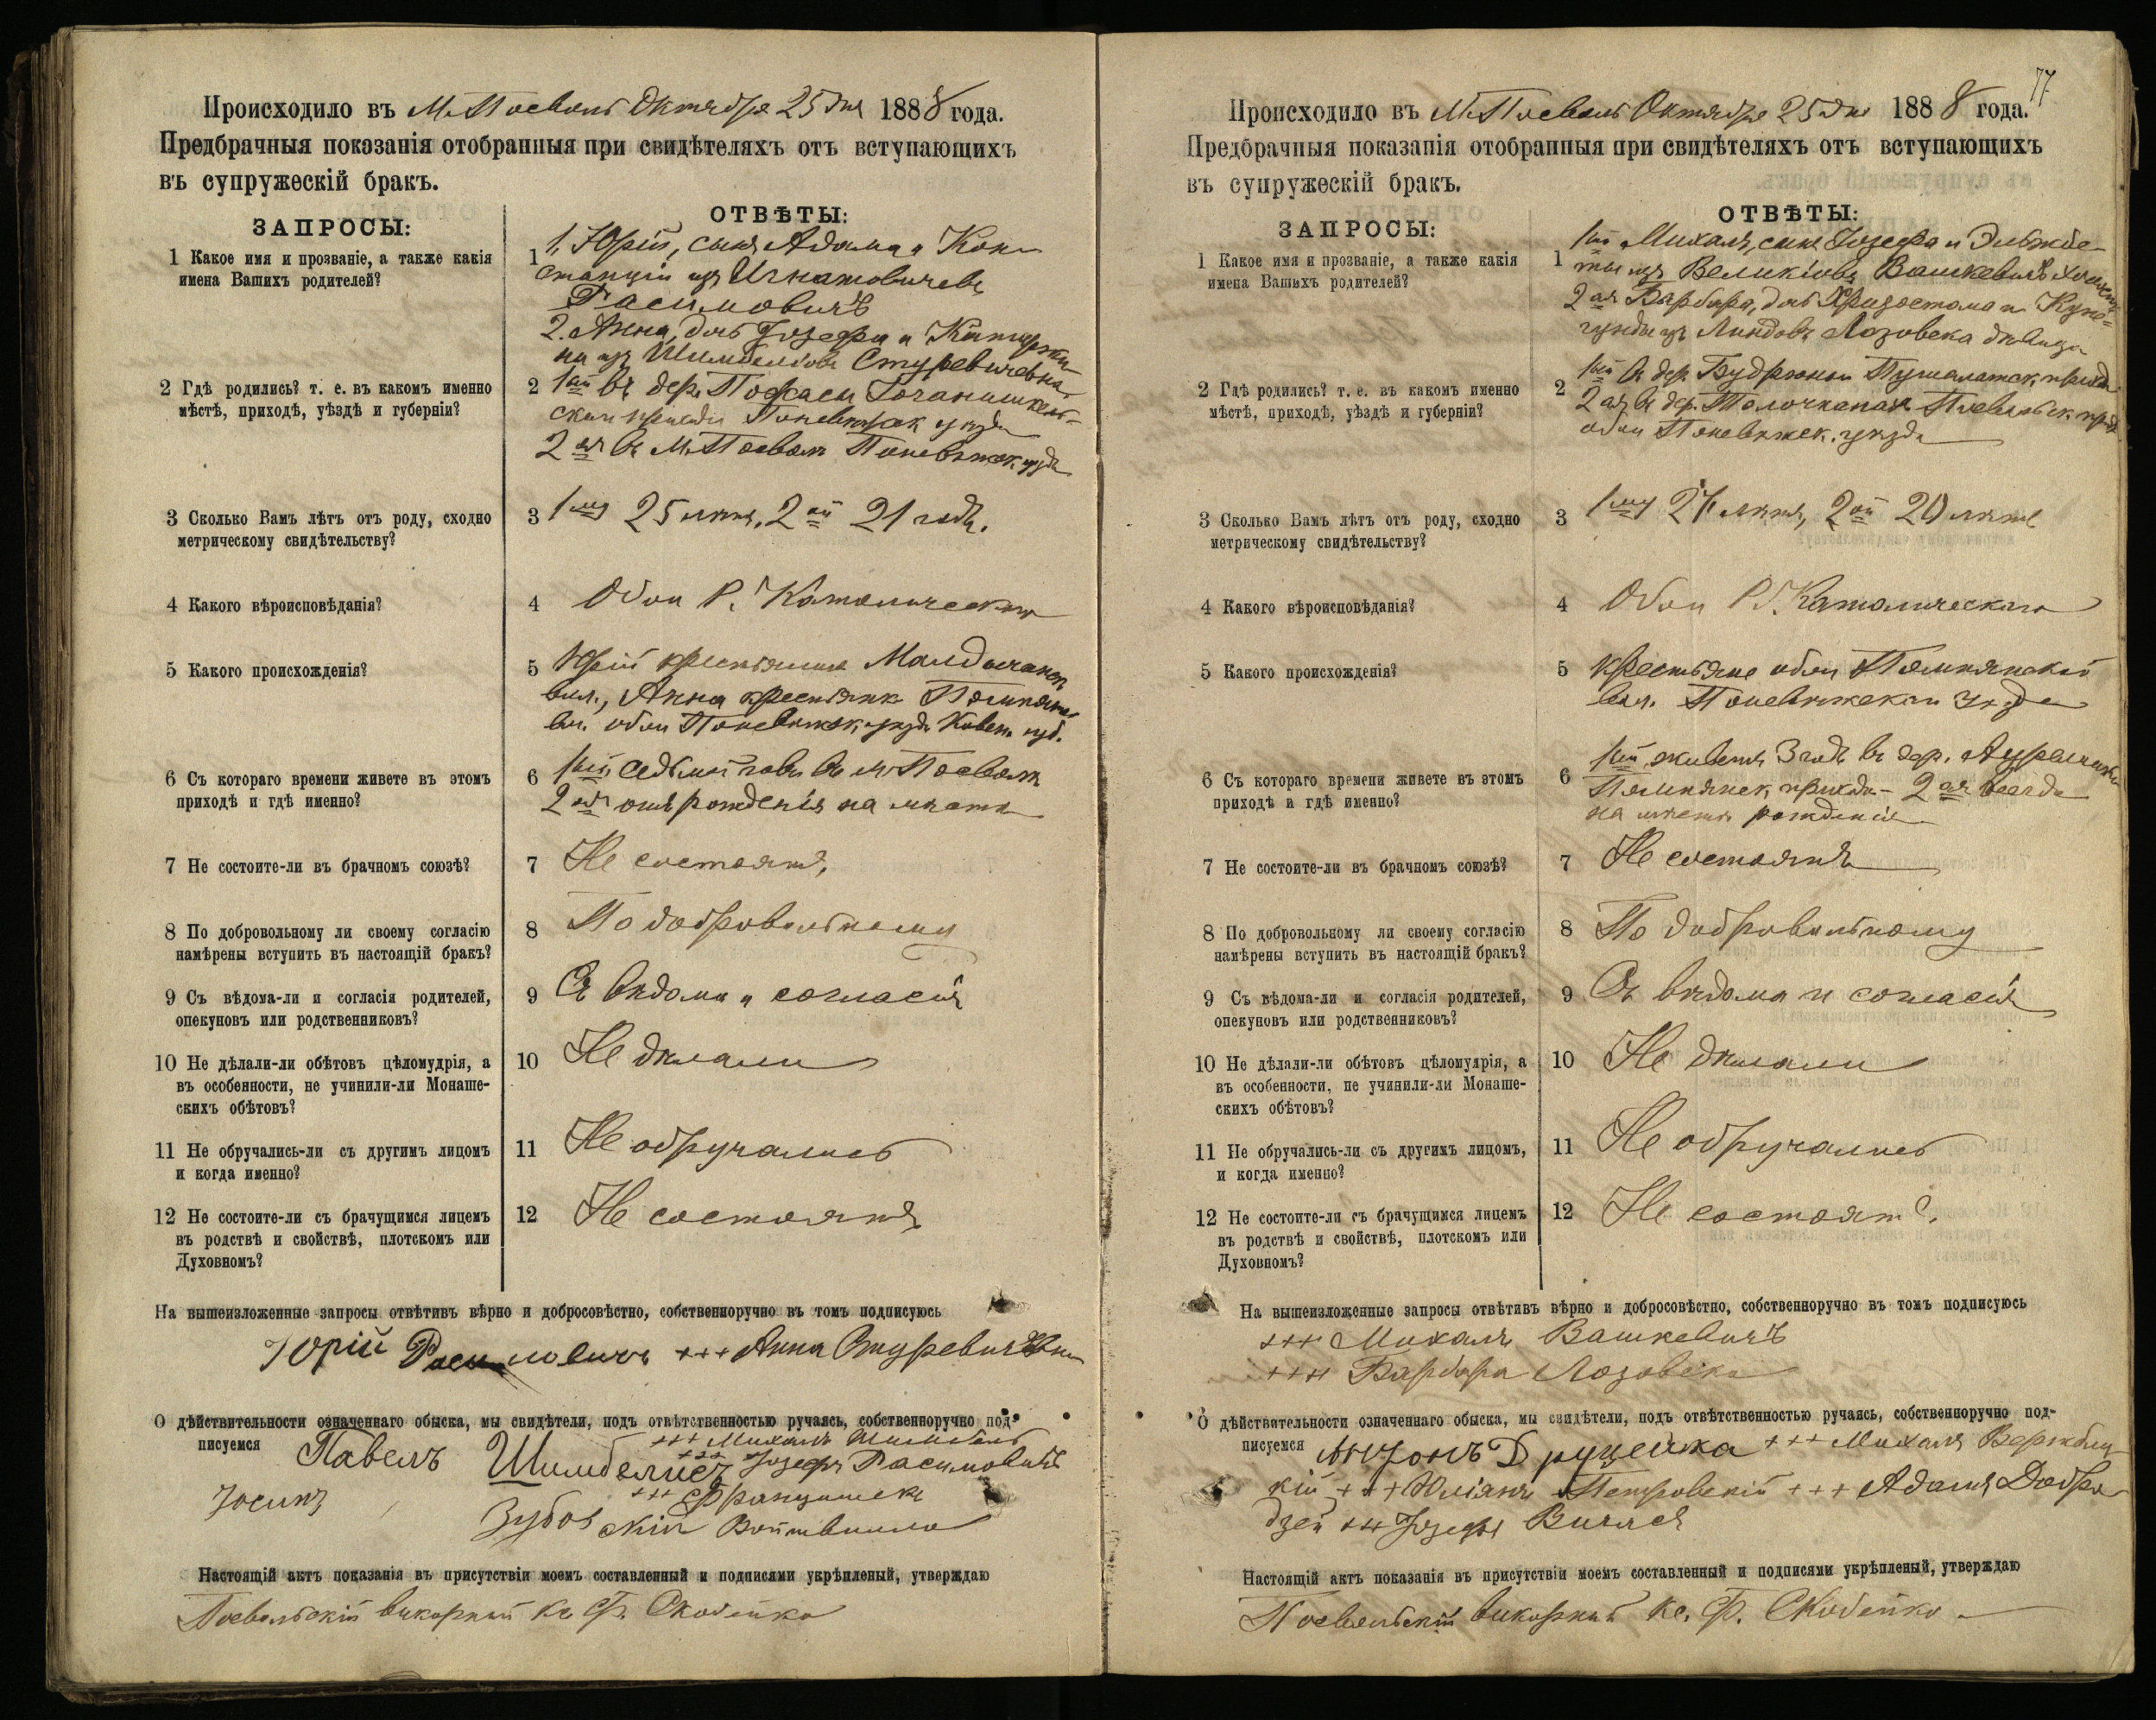 Происходило въ М. Посволь Октября 25 дня 1888 года.
Предбрачныя показанія отобранныя при свидѣтеляхъ отъ вступающихъ
въ супружескій бракъ.
ЗАПРОСЫ:
ОТВѢТЫ:
1 Какое имя и прозваніе, а также какія
имена Вашихъ родителей?
1 1. Юрій, сынъ Адама и Кон-
станціи изъ Игнатовичевъ
Расимовичъ
2. Анна, дочь Іозефа и
на изъ Шимбелісовъ Стуревичевна
2 Гдѣ родились? т. е. въ какомъ именно
мѣстѣ, приходѣ, уѣздѣ и губерніи?
2 1ый въ дер.
прихода Поневѣжск. уѣзда
2ая въ М. Посволь Поневѣжск. уѣзда
3 Сколько Вамъ лѣтъ отъ роду, сходно
метрическому свидѣтельству?
3 1му 25 лѣтъ, 2ой 21 годъ.
4 Какого вѣроисповѣданія?
4 Обои Р. Католическаго
5 Какого происхожденія?
5 Юрій крестьянинъ
вол., Анна крестьянка
вол. обои Поневѣжск. уѣзда Ковен. губ.
6 Съ котораго времени живете въ этомъ
приходѣ и гдѣ именно?
6 1ый седьмой годъ въ м. Посволь
2ая отъ рожденія на мѣстѣ
7 Не состоите-ли въ брачномъ союзѣ?
7 Не состоятъ,
8 По добровольному ли своему согласію
намѣрены вступить въ настоящій бракъ?
8 По добровольному
9 Съ вѣдома-ли и согласія родителей,
опекуновъ или родственниковъ?
9 Съ вѣдома и согласія
10 Не дѣлали-ли обѣтовъ цѣломудрія, а
въ особенности, не учинили-ли Монаше-
скихъ обѣтовъ?
10 Не дѣлали
11 Не обручались-ли съ другимъ лицомъ
и когда именно?
11 Не обручались
12 Не состоите-ли съ брачущимся лицемъ
въ родствѣ и свойствѣ, плотскомъ или
Духовномъ?
12 Не состоятъ
На вышеизложенные запросы отвѣтивъ вѣрно и добросовѣстно, собственноручно въ томъ подписуюсь
Юрій Расимовичъ +++ Анна Стуревичевна
О дѣйствительности означеннаго обыска, мы свидѣтели, подъ отвѣтственностью ручаясь, собственноручно под-
писуемся
+++ Михалъ
Павелъ Шимбелисъ +++ Іозефъ Расимовичъ
+++ Францишекъ
Юсипъ Зубовскій Войтвилло
Настоящій актъ показанія въ присутствіи моемъ составленный и подписями укрѣпленый, утверждаю
Посвольскій викарный Кс. Ф. Скобейко
77
Происходило въ М. Посволь Октября 25 дня 1888 года.
Предбрачныя показанія отобранныя при свидѣтеляхъ отъ вступающихъ
въ супружескій бракъ.
ЗАПРОСЫ:
ОТВѢТЫ:
1 Какое имя и прозваніе, а также какія
имена Вашихъ родителей?
1 1ый Михалъ, сынъ Іозефа и Эльжбе-
ты изъ Великіовъ Вашкевичъ
2ая Барбара, дочь Хризостома и Куне-
гунды изъ Линдовъ Лозовска дѣвица
2 Гдѣ родились? т. е. въ какомъ именно
мѣстѣ, приходѣ, уѣздѣ и губерніи?
2 1ый въ дер.
2ая въ дер. Толочканахъ
обои Поневѣжск. уѣзда
3 Сколько Вамъ лѣтъ отъ роду, сходно
метрическому свидѣтельству?
3 1му 27 лѣтъ, 2ой 20 лѣтъ
4 Какого вѣроисповѣданія?
4 Обои Р. Католическаго
5 Какого происхожденія?
5 Крестьяне обои
вол. Поневѣжскаго уѣзда
6 Съ котораго времени живете въ этомъ
приходѣ а гдѣ именно?
6 1ый живетъ 3 годъ въ дер.
прихода - 2ая всегда
на мѣстѣ рожденія
7 Не состоите-ли въ брачномъ союзѣ?
7 Не состоятъ
8 По добровольному ли своему согласію
намѣрены вступить въ настоящій бракъ?
8 По добровольному
9 Съ вѣдома-ли и согласія родителей,
опекуновъ или родственниковъ?
9 Съ вѣдома и согласія
10 Не дѣлали-ли обѣтовъ цѣломудрія, а
въ особенности, не учинили-ли Монаше-
скихъ обѣтовъ?
10 Не дѣлали
11 Не обручались-ли съ другихъ лицомъ,
и когда именно?
11 Не обручались
12 Не состоите-ли съ брачущимся лицемъ
въ родствѣ и свойствѣ, плотскомъ или
Духовномъ?
12 Не состоятъ.
На вышеизложенные запросы отвѣтивъ вѣрно и добросовѣстно, собственноручно въ томъ подписуюсь
+++ Михалъ Вашкевичъ
+++ Барбара Лозовска
О дѣйствительности означеннаго обыска, мы свидѣтели, подъ отвѣтственностью ручаясь, собственноручно под-
писуемся Антонъ Друцейка +++ Михалъ Вержбиц-
кій +++ Юліянъ Петровскій +++ Адамъ Добро-
дзей +++ Іозефъ
Настоящій актъ показанія въ присутствіи моемъ составленный и подписями укрѣпленый, утверждаю
Посвольскій викарный Кс. Ф. Скобейко